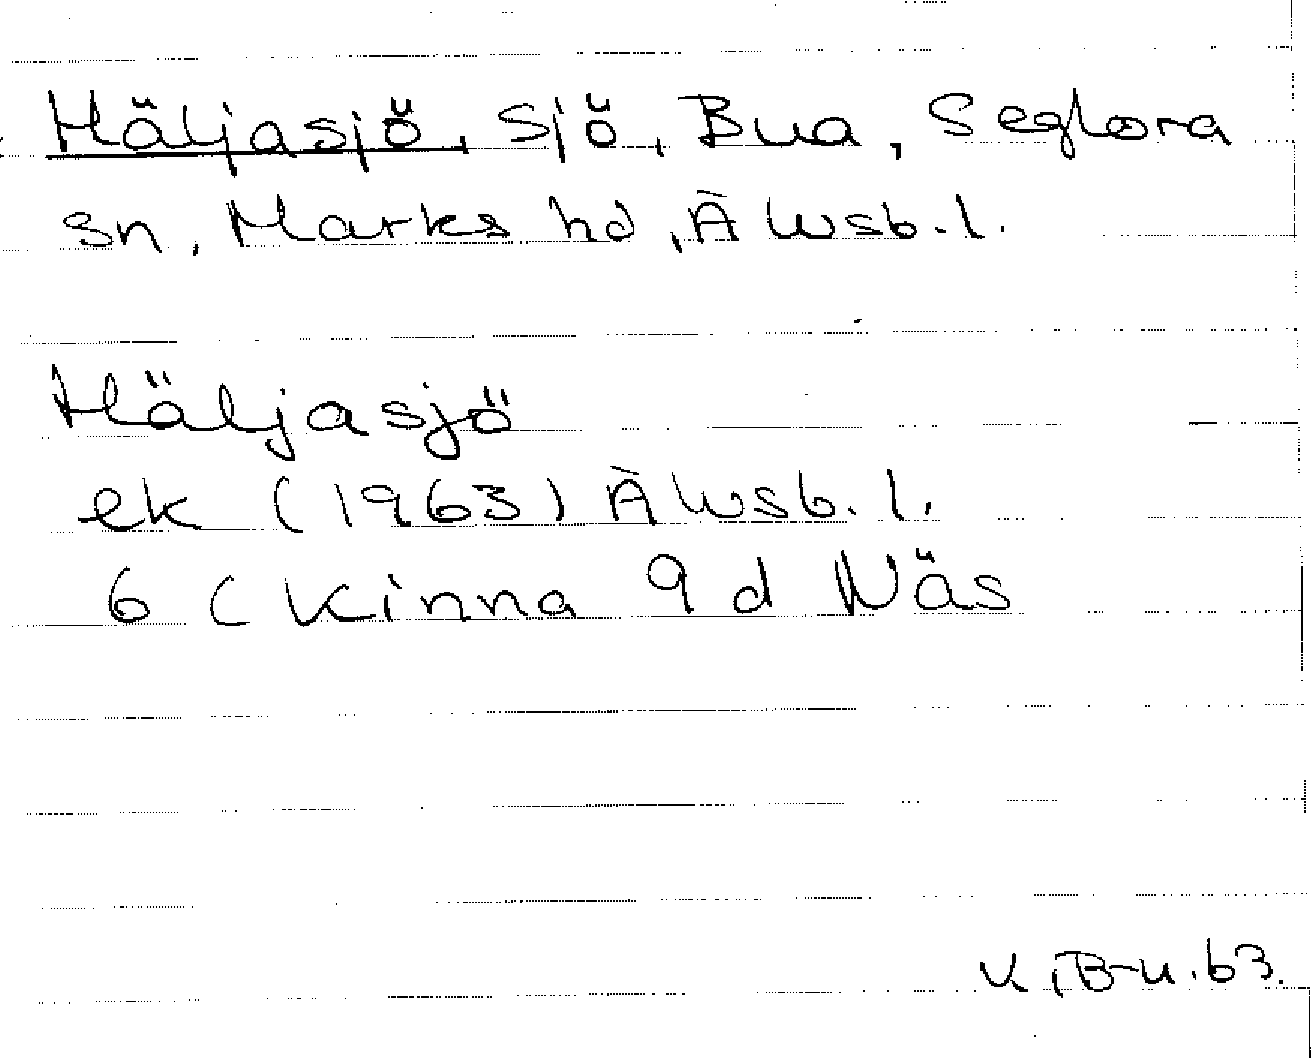 Häljasjö, sjö, Bua, Seglora
sn, Marks hd, Älvsb. l.
Häljasjö
ek (1963) Älvsb. l.
6 C Kinna 9 d Näs